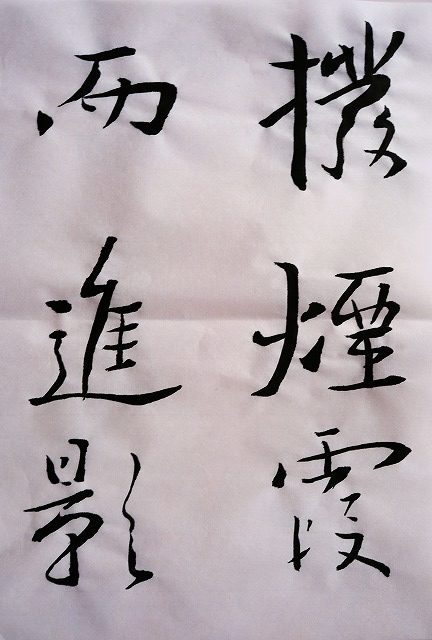 撥煙霞
而進影